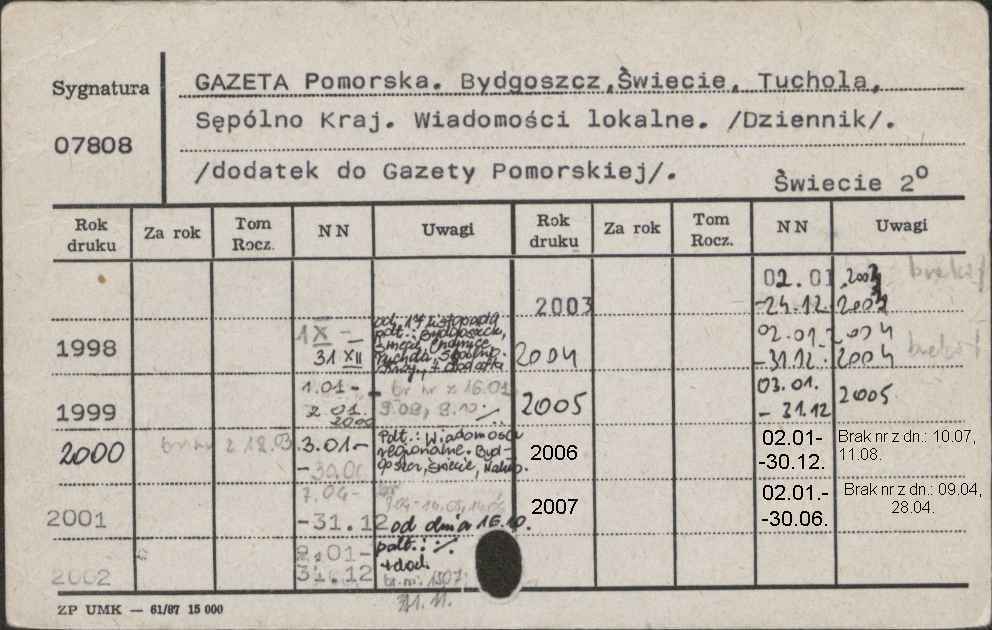 Sygnatura
07808
GAZETA Pomorska. Bydgoszcz, Świecie, Tuchola,
Sępólno Kraj. Wiadomości lokalne. /Dziennik/.
/dodatek do Gazety Pomorskiej/.
Świecie 2º
Rok druku Za rok Tom Rocz. NN Uwagi Rok druku Za rok Tom Rocz. NN Uwagi
1998
1 X –
31 XII
od: 17 listopada
podt.: Bydgoszcz,
1999
1.01 –
2.01.
2000
br nr z 16.01
9.08, 8.10
2000
br nr z 18.03
3.01–
–30.06
Podt.: Wiadomości
regionalne. Byd-
goszcz, Świecie, Nakło.
2001
7.04–
–31.12
od dnia 16.10.
2002
2.01–
31.12
podt.:
+ dod.
br. nr. 1507;
21.11.
2003
02.01
–24.12.
2003
2004
02.01.
–31.12.
2004
2004
2005
03.01.
– 31.12
2005
2006
02.01-
-30.12.
Brak nr z dn.: 10.07,
11.08.
2007
02.01.-
-30.06.
Brak nr z dn.: 09.04,
28.04.
ZP UMK — 61/87 15 000